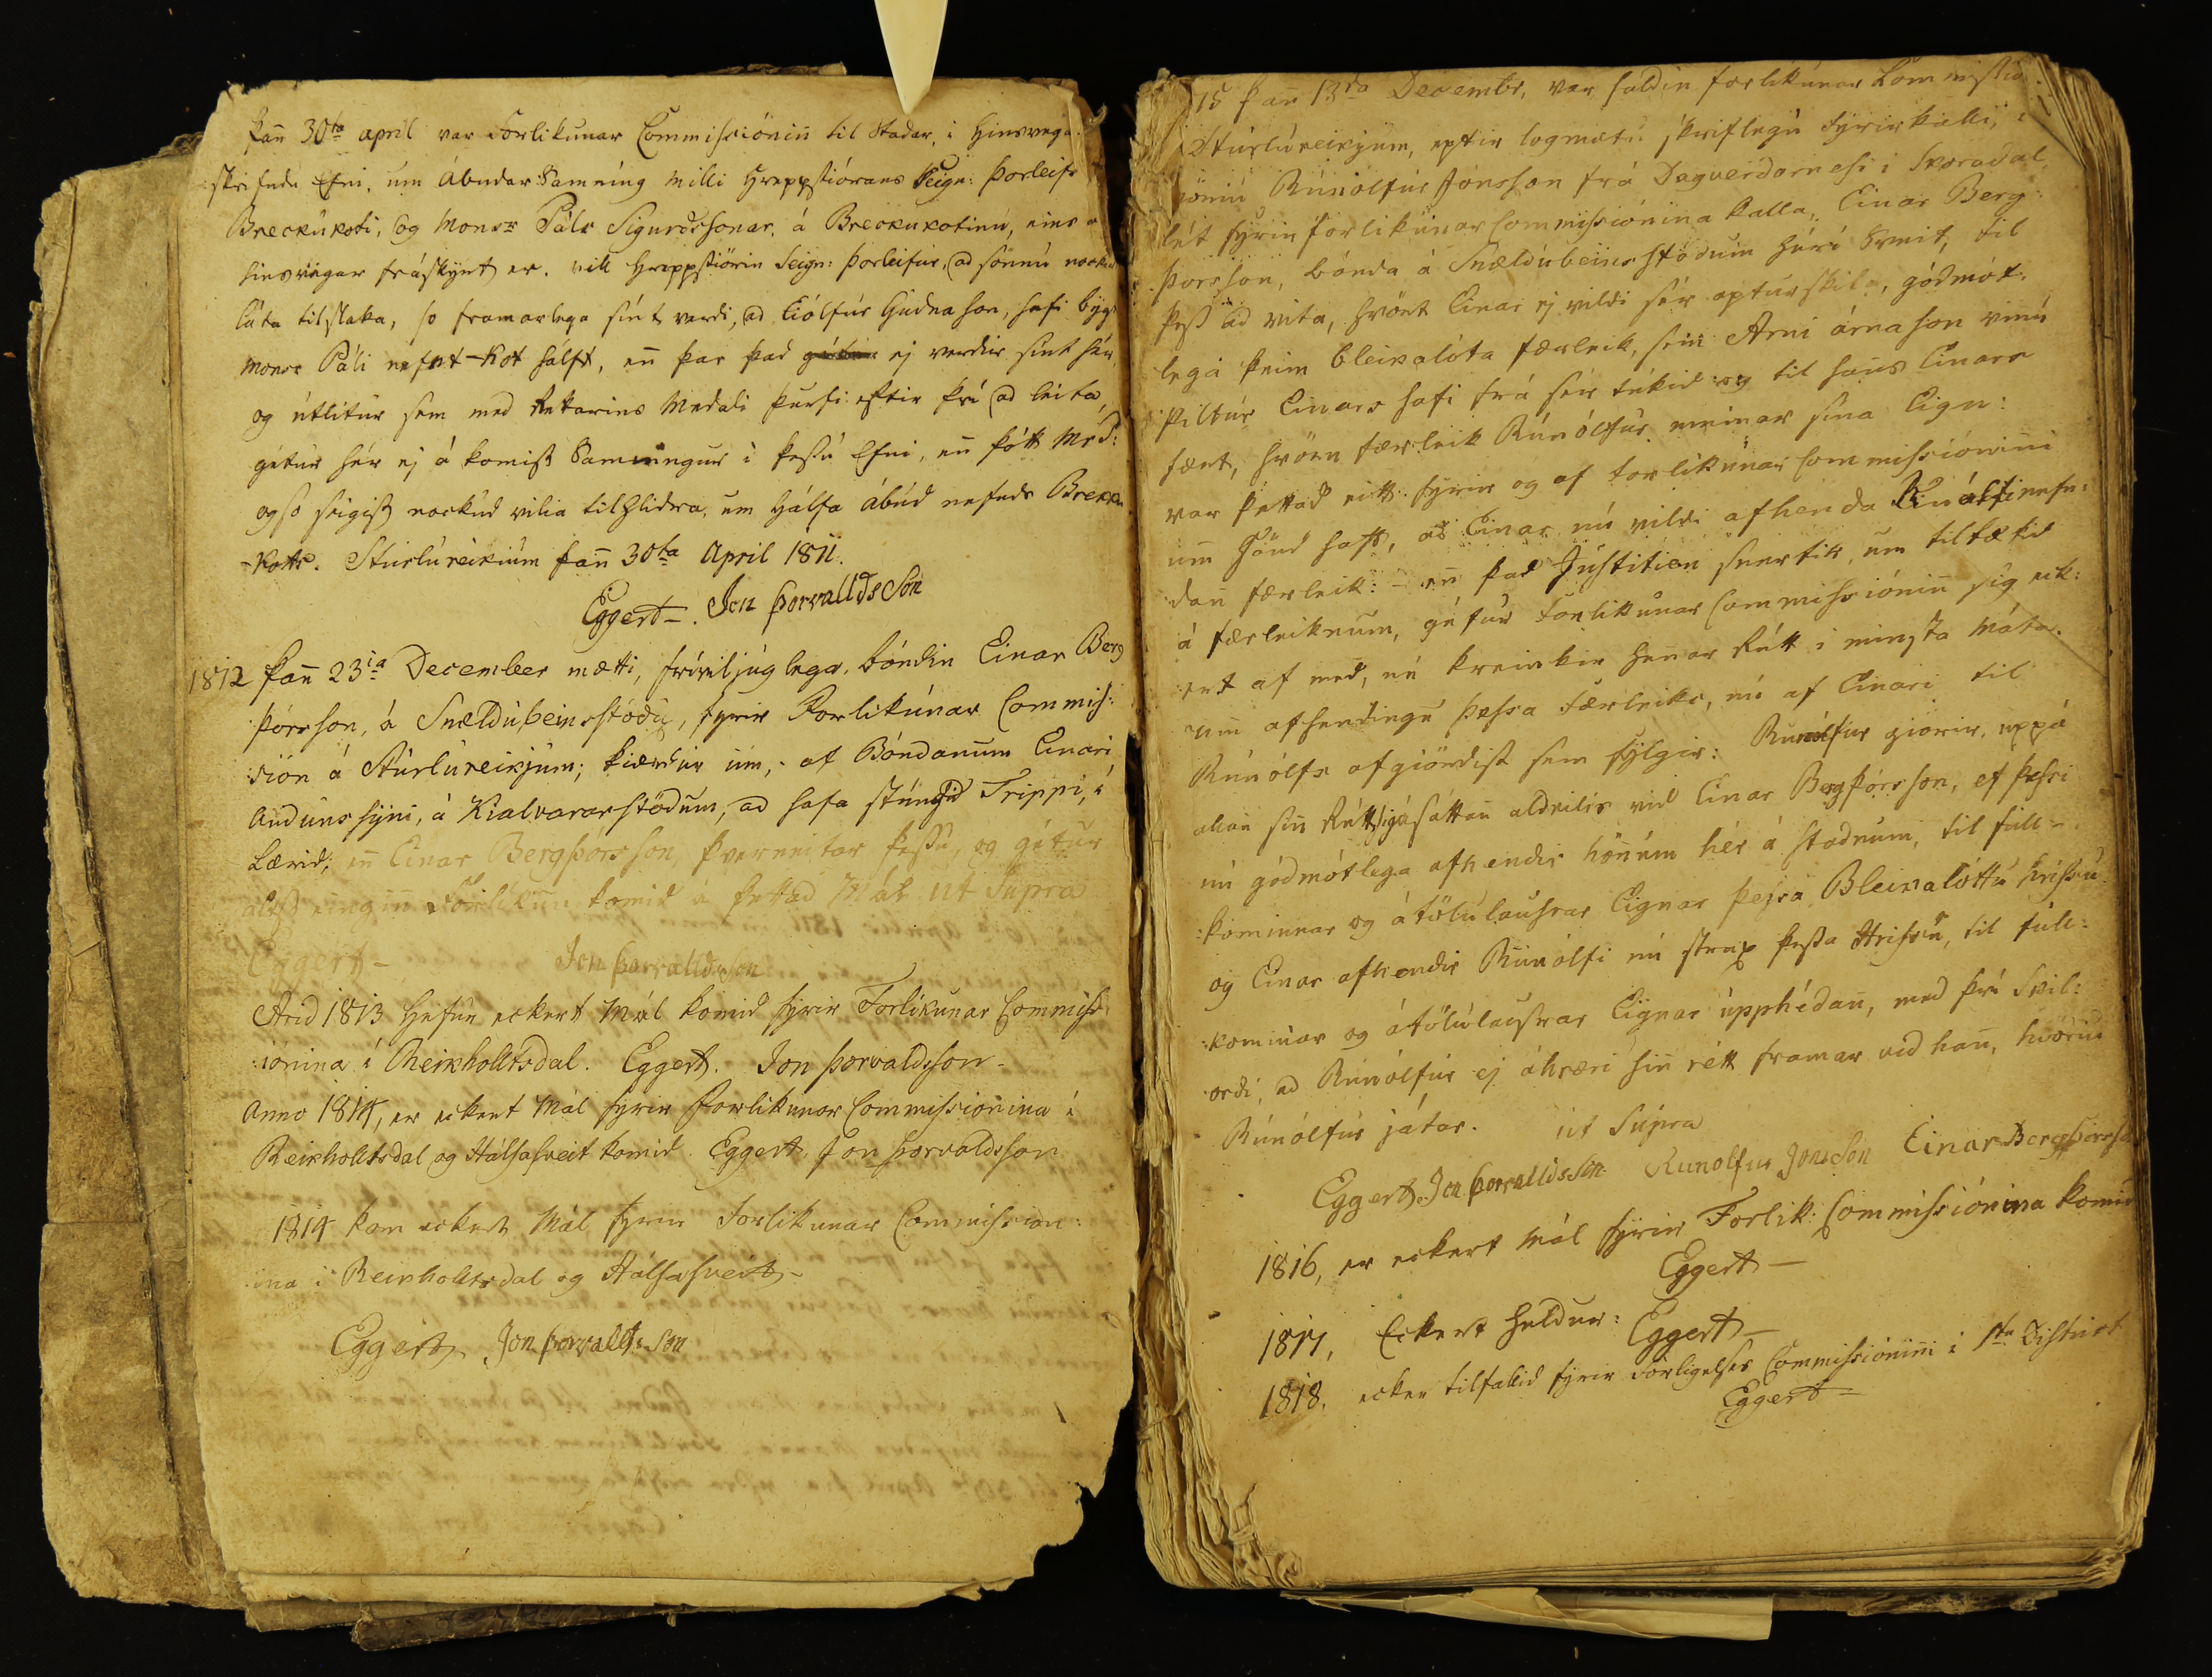 Þan̄ 30ta april var Forlikunar Commissiónin̄ til Stadar, i Hinsvega
skrifudu Efni, um ábudar Samníng milli Hreppstiórans Seign: Þorleifs
Breckukoti, og Monsr Páls Sigurdssonar, á Breckukotinu, eins og
hinsvegar fráskýrt er. vill Hreppstiórin Seign: Þorleifur, ad sönnu nockud
láta tilslaka, so framarlega sínt verdi, ad Eiólfur Gudnason, hafi bygt
Monsr Páli nefnt Kot hálft, en̄ þar þad ej verdur sínt hér,
og útlitur sem med Rektarins Medali þurfi eftir þvi ad leita,
gétur hér ej á komist Samningur i þessu Efni, en̄ þótt Mrs:
og so seigist nockud vilia tilhlidra, um hálfa ábúd nefnds Brecku
Kots. Sturlureikium þan̄ 30ta April 1811.
Eggert. Jon Þorvalldsson
1812 Þan̄ 23ia December mætti, fríviljuglega, bóndin Einar Berg
þórsson, á Snældubeinsstödu, fyrir Forlikúnar Commis:
sión á Sturlureikjum; kiærdur um, af Bóndanum Einari
Auduns syni, á Kialvararstödum, ad hafa stúngid Trippi, i
Lærid; en̄ Einar Bergþórsson, þverneitar þessu, og gétur
altso eingin̄ Forlikun komid á þettad Mál ut Supra
Eggert Jon Þorvalldsson
Arid 1813 Hefur eckert Mál komid fyrir Forlikunar Commiss
iónina i Reikholltsdal. Eggert. Jon Þorvaldsson
Anno 1814, er eckert Mál fyrir Forlikunar Commissionina i
Reikholltsdal og Hálsasveit komid. Eggert. Jon Þorvaldsson
1814 kom eckert Mál fyrir Forlikunar Commission:
ina i Reikholltsdal og Hálsasveit
Eggert Jon Þorvalldsson
15 þan̄ 13da Decembr, var haldin forlikúnar Commissio
Sturlureikjum, eptir logmætu skriflegu Fyrirkalli,
Rúnólfur Jónsson frá Dagverdarnesi i Skoradal,
lét fyrir forlikúnar Commissiónina kalla, Einar Berg:
þórsson, bónda á Snældubeinsstödum hér i Sveit, til
þess ad vita, hvört Einar ej vildi sér aptur skila, gódmót:
lega þeim bleikalóta færleik, sem Arni árnason vinnu
piltur Einars hafi frá sér tekid og til hans Einars
fært, hvörn færleik Rúnólfur meinar sína Eign:
var þettad eitt fyrir og af forlikúnar Commissionini
um̄ hönd haft, ad Einar nú vildi afhenda Rúnólfi nefn:
dan̄ færleik: en̄ þad Justitien snertir, um tiltækid
á færleiknum, gétur Forlikúnar Commissiónin̄ sig eck:
ert af med, né kreinkir hen̄ar Rétt i minsta Máta.
um̄ afhendingu þessa Færleiks, nú af Einari til
Rúnólfs afgiördist sem fylgir: Runólfur giörir, uppá
allan̄ sin̄ Rétt sig ásáttan̄ aldeilis vid Einar Bergþórsson, ef þessi
nú gódmótlega afhendir hönúm hér á stadnum, til full:
kominnar og átölulausrar Eignar þessa Bleikalóttu hrissu
og Einar afhendir Rúnólfi nú strax þessa Hrissu, til full:
kominar og átölulausrar Eignar upphédan̄, med því Skil:
ordi, ad Rúnólfur ej ákræri sin̄ rétt framar vid han̄, hvörju
Rúnólfur játar. ut Supra
Eggert. Jon Þorvalldsson Runolfur Jonsson Einar Bergþorss
1816, er eckert Mál fyrir Forlik: Commissiónina komid
Eggert
1817, Eckert heldur: Eggert
1818. ecker tilfallid fyrir Forligelses Commissionini i 1ta District
Eggert